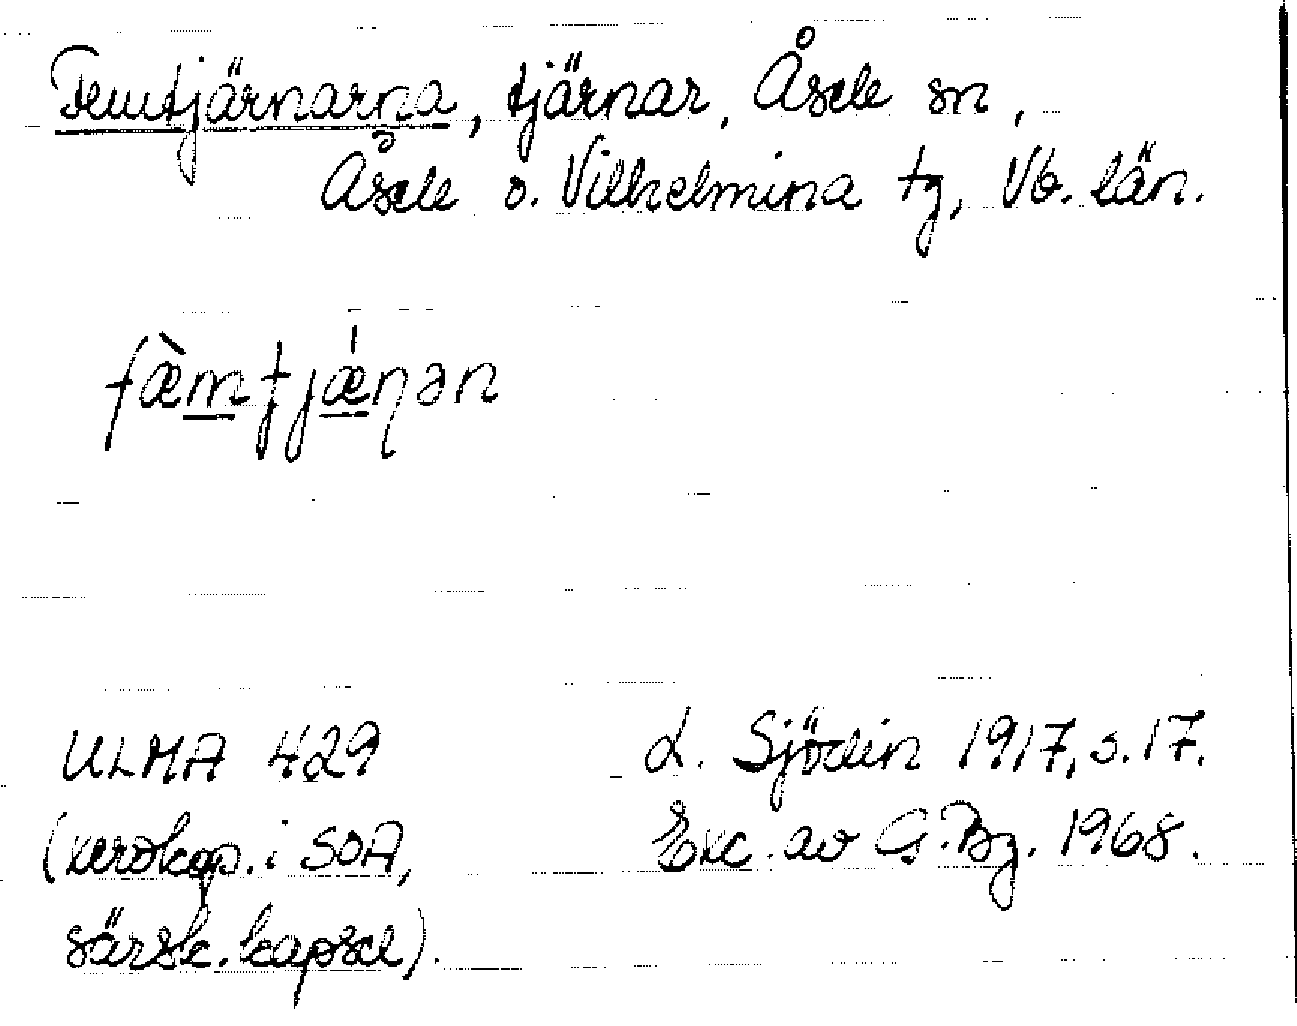 Femtjärnarna, tjärnar, Åsele sn,
Åsele o. Vilhelmina tg, Vb. län.
fæ̀mtjǽṇən
ULMA 429
(xerokop. i SOA,
särsk. kapsel).
L. Sjödin 1917, s. 17.
Exc. av G. Bg. 1968.